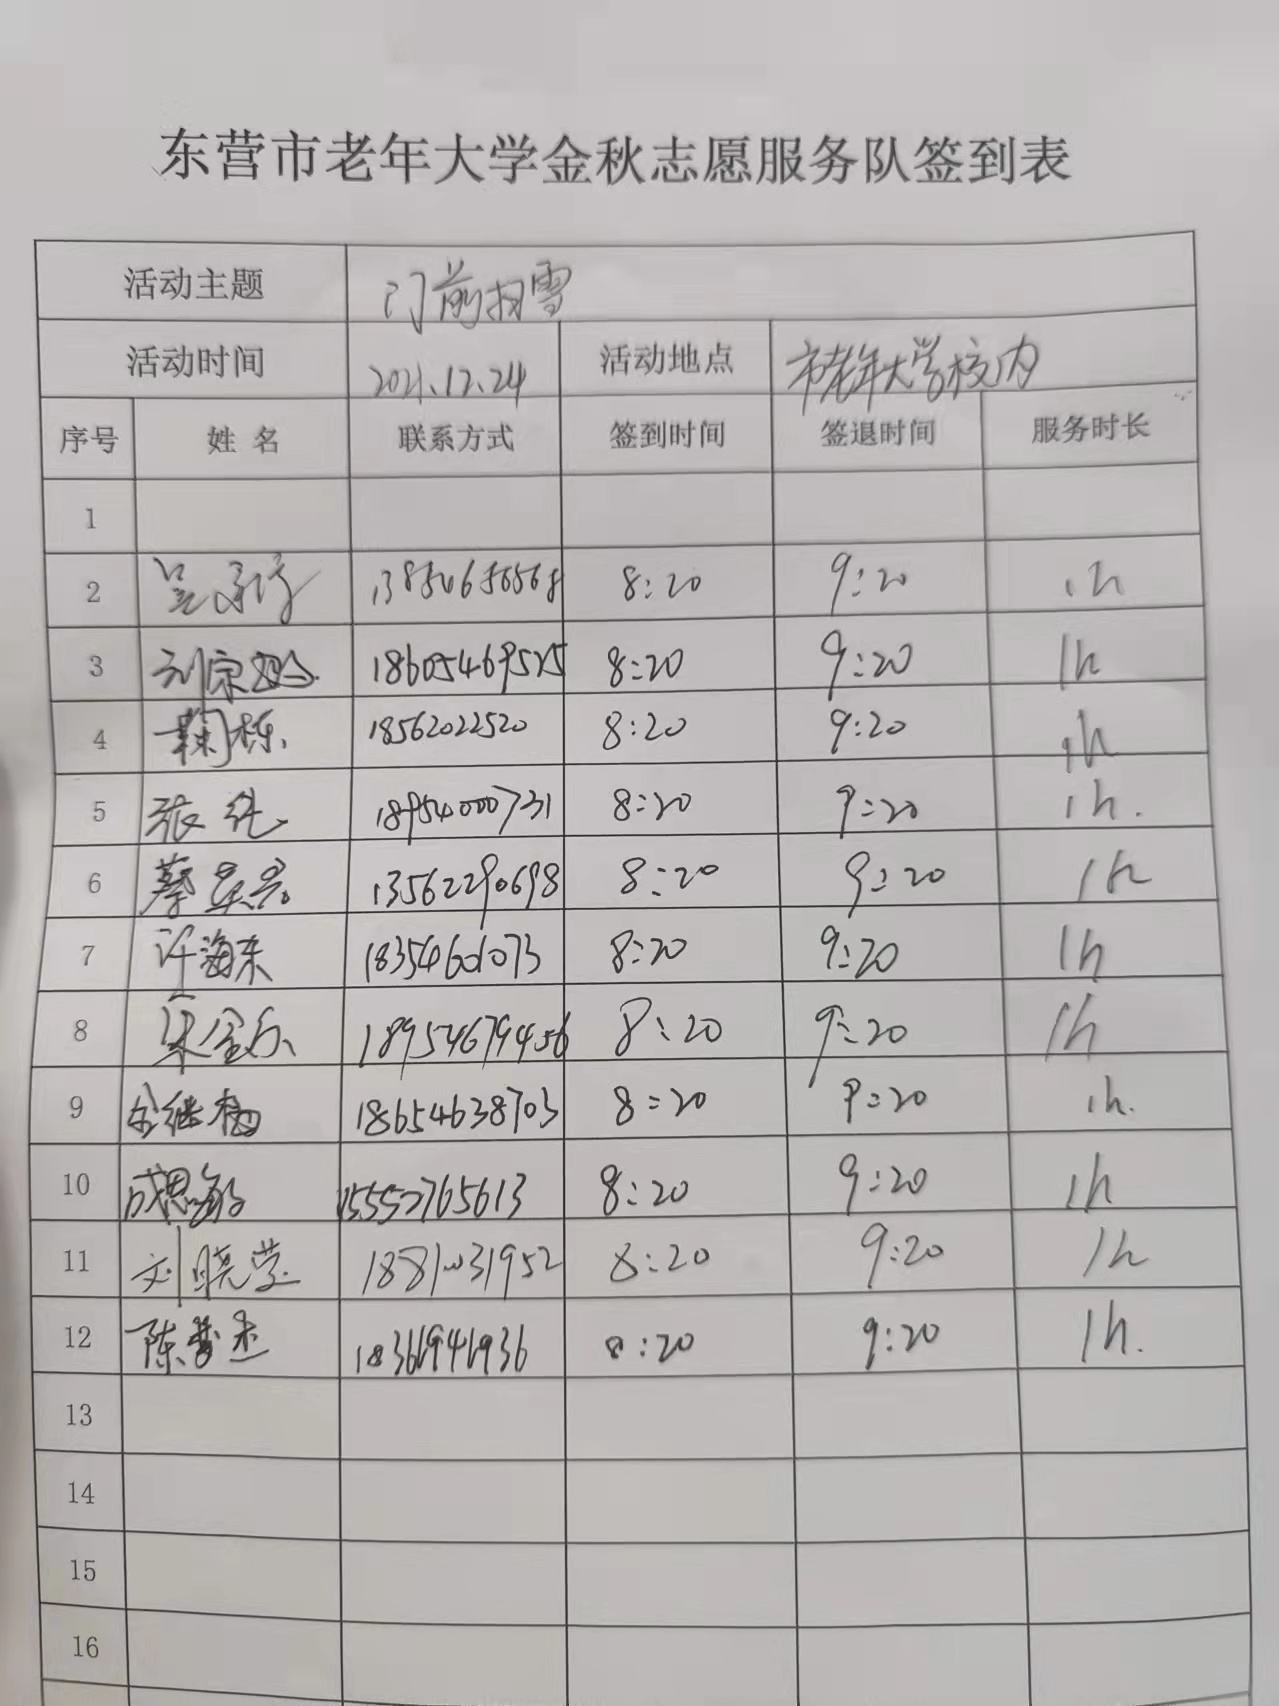 东营市老年大学金秋志愿服务队签到表
活动主题 门前扫雪
活动时间 2021.12.24 活动地点 市老年大学校内
序号 姓名 联系方式 签到时间 签退时间 服务时长
1
2 8:20 9:20 1h
3 18605469525 8:20 9:20 1h
4 鞠栋 18562022520 8:20 9:20 1h
5 18954000731 8:20 9:20 1h.
6 13562290698 8:20 9:20 1h
7 许海东 8:20 9:20 1h
8 18954679456 8:20 9:20 1h
9 18654638703 8:20 9:20 1h.
10 成思敏 15552765613 8:20 9:20 1h
11 刘晓莹 8:20 9:20 1h
12 18366946936 8:20 9:20 1h.
13
14
15
16